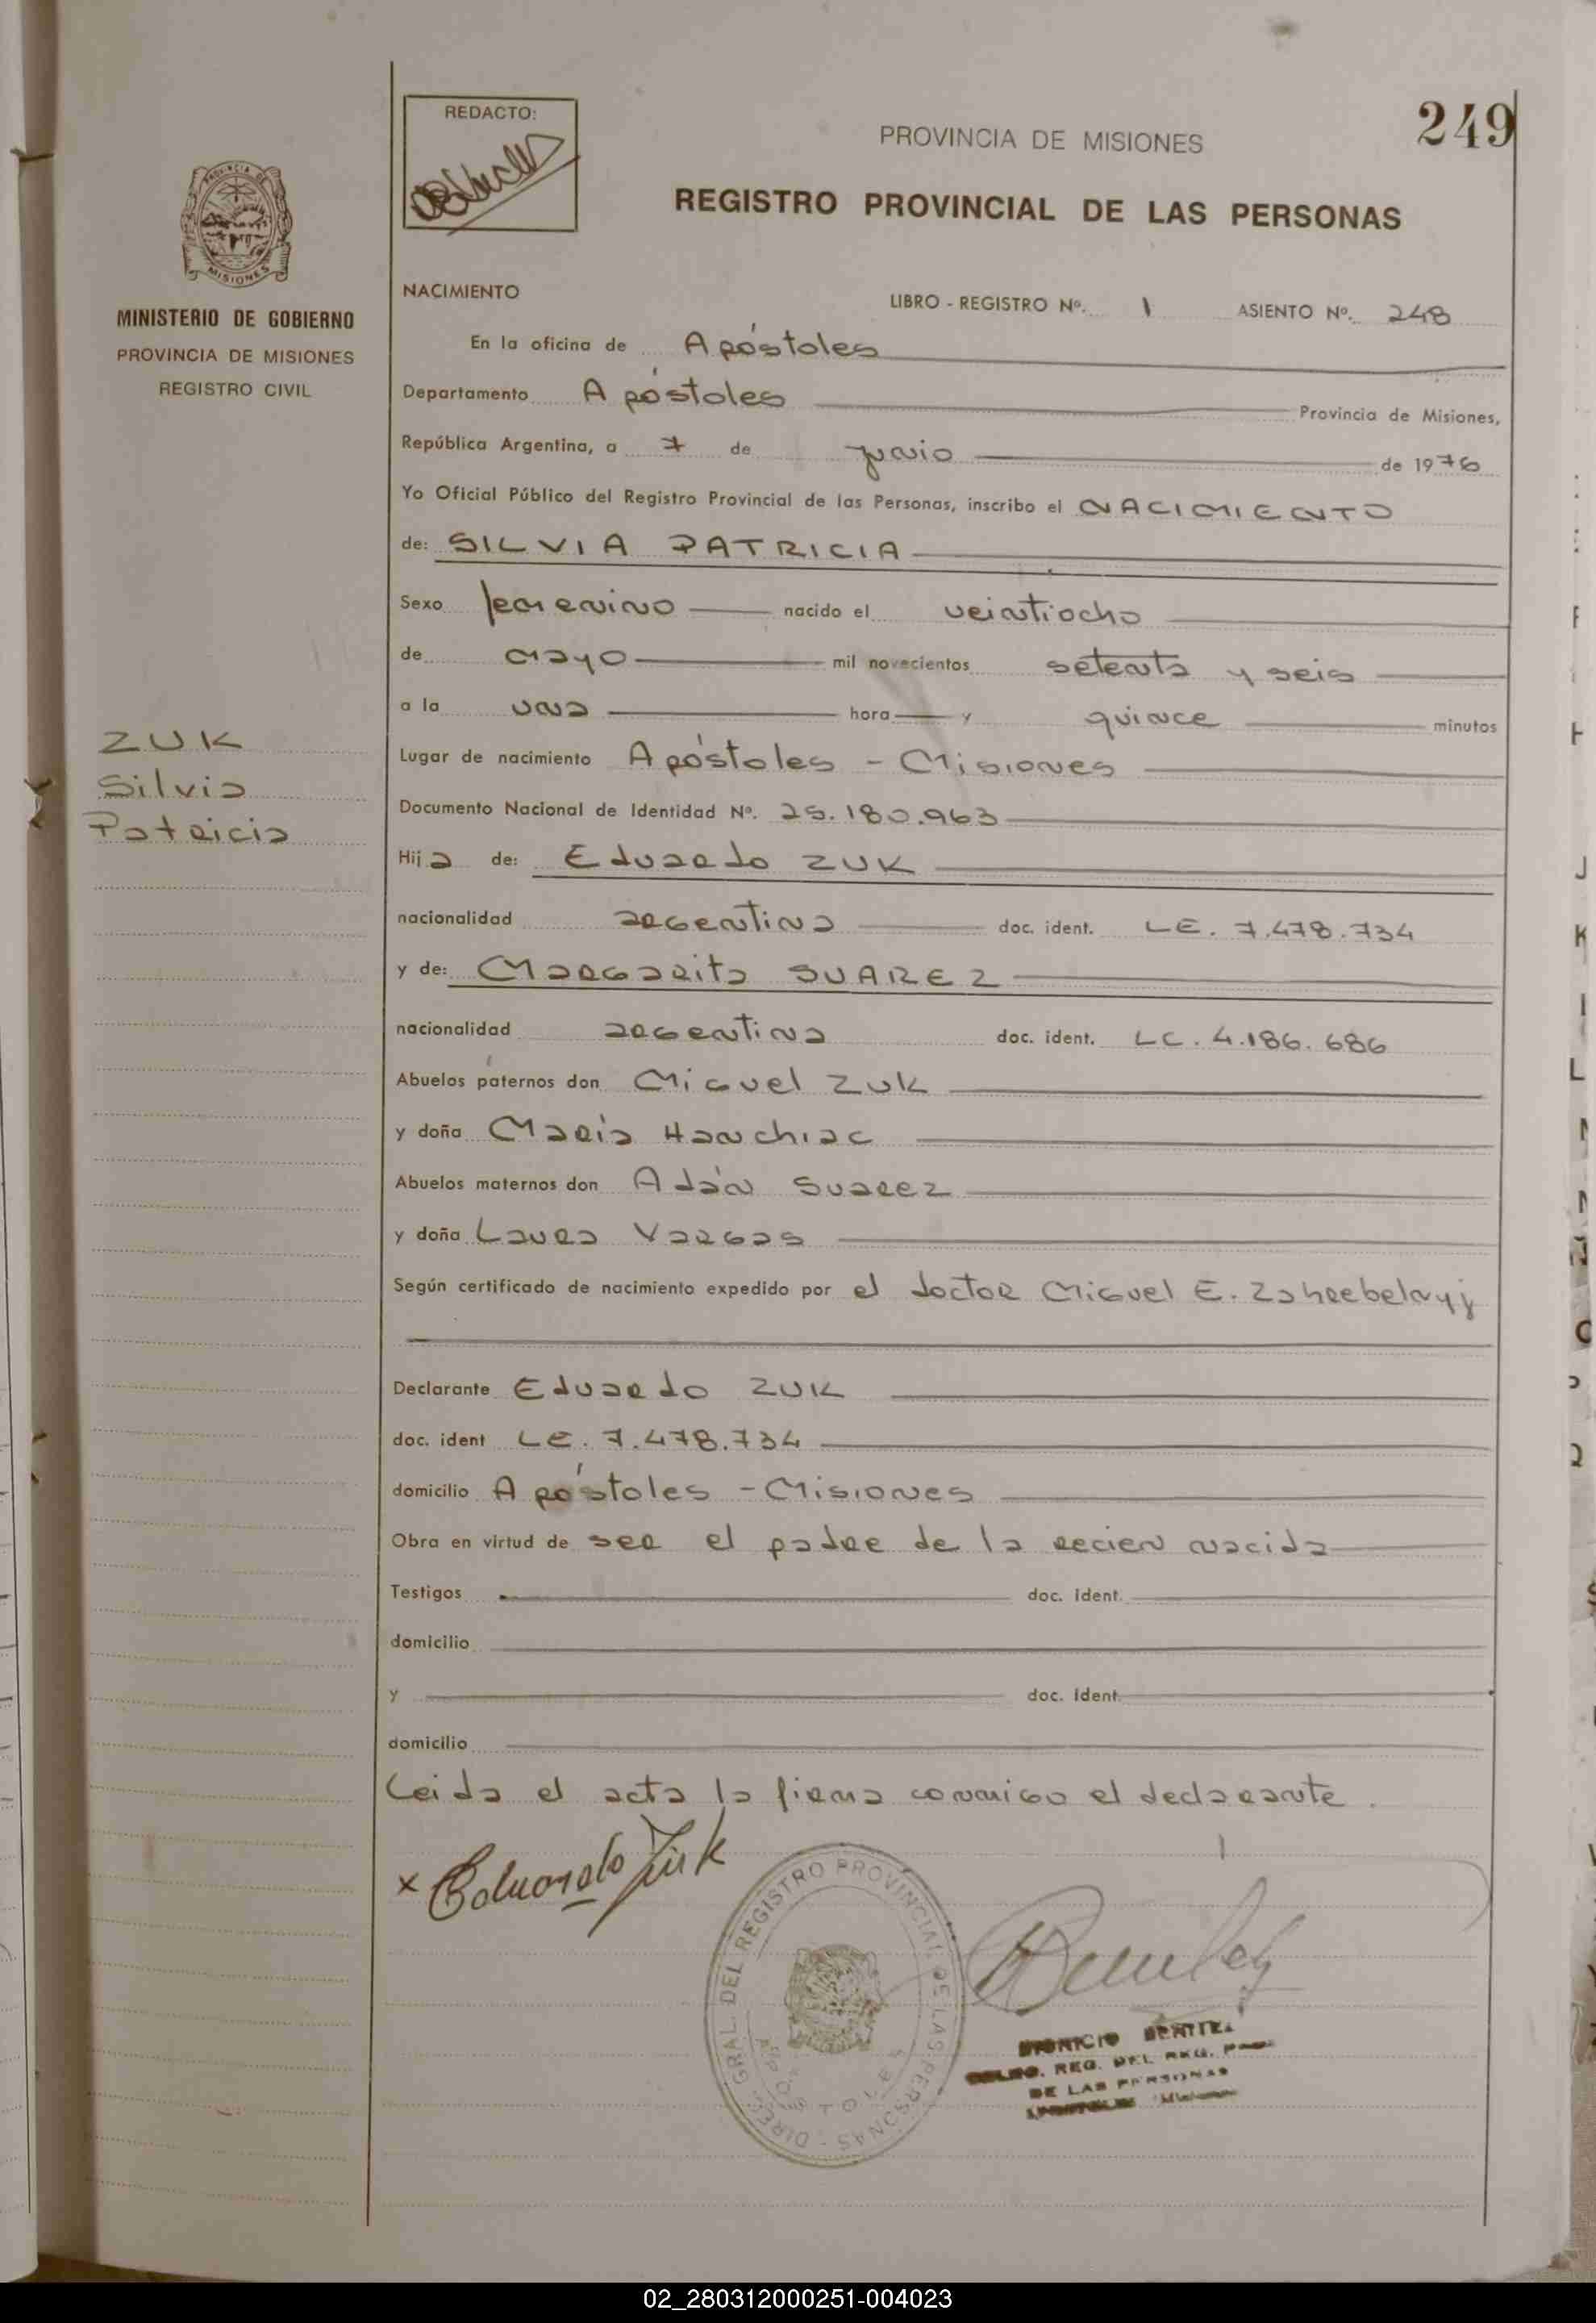 249
REDACTO:
PROVINCIA DE MISIONES
REGISTRO PROVINCIAL DE LAS PERSONAS
PROVINCIA DE MISIONES
MINISTERIO DE GOBIERNO
PROVINCIA DE MISIONES
REGISTRO CIVIL
ZUK
Silvia
Patricia
NACIMIENTO LIBRO - REGISTRO Nº. 1 ASIENTO Nº. 248
En la oficina de Apóstoles
Departamento Apóstoles Provincia de Misiones,
República Argentina, a 7 de junio de 1976
Yo Oficial Público del Registro Provincial de las Personas, inscribo el NACIMIENTO
de: SILVIA PATRICIA
Sexo femenino nacido el veintiocho
de mayo mil novecientos setenta y seis
a la una hora y quince minutos
Lugar de nacimiento Apóstoles - Misiones
Documento Nacional de Identidad Nº. 25.180.963
Hija de: Eduardo ZUK
nacionalidad argentina doc. ident. LE. 7.478.734
y de: Margarita SUAREZ
nacionalidad argentina doc. ident. LC. 4.186.686
Abuelos paternos don Miguel Zuk
y doña María Hanchiac
Abuelos maternos don Adán Suarez
y doña Laura Vargas
Según certificado de nacimiento expedido por el doctor Miguel E.
Declarante Eduardo ZUK
doc. ident LE. 7.478.734
domicilio Apóstoles - Misiones
Obra en virtud de ser el padre de la recien nacida
Testigos doc. ident.
domicilio
y doc. ident.
domicilio
Leida el acta la firma conmigo el declarante.
x Eduardo Zuk
DIREC. GRAL. DEL REGISTRO PROVINCIAL DE LAS PERSONAS - APOSTOLES
DIONICIO
REG. DEL REG.
DE LAS PERSONAS
Misiones
02_280312000251-004023